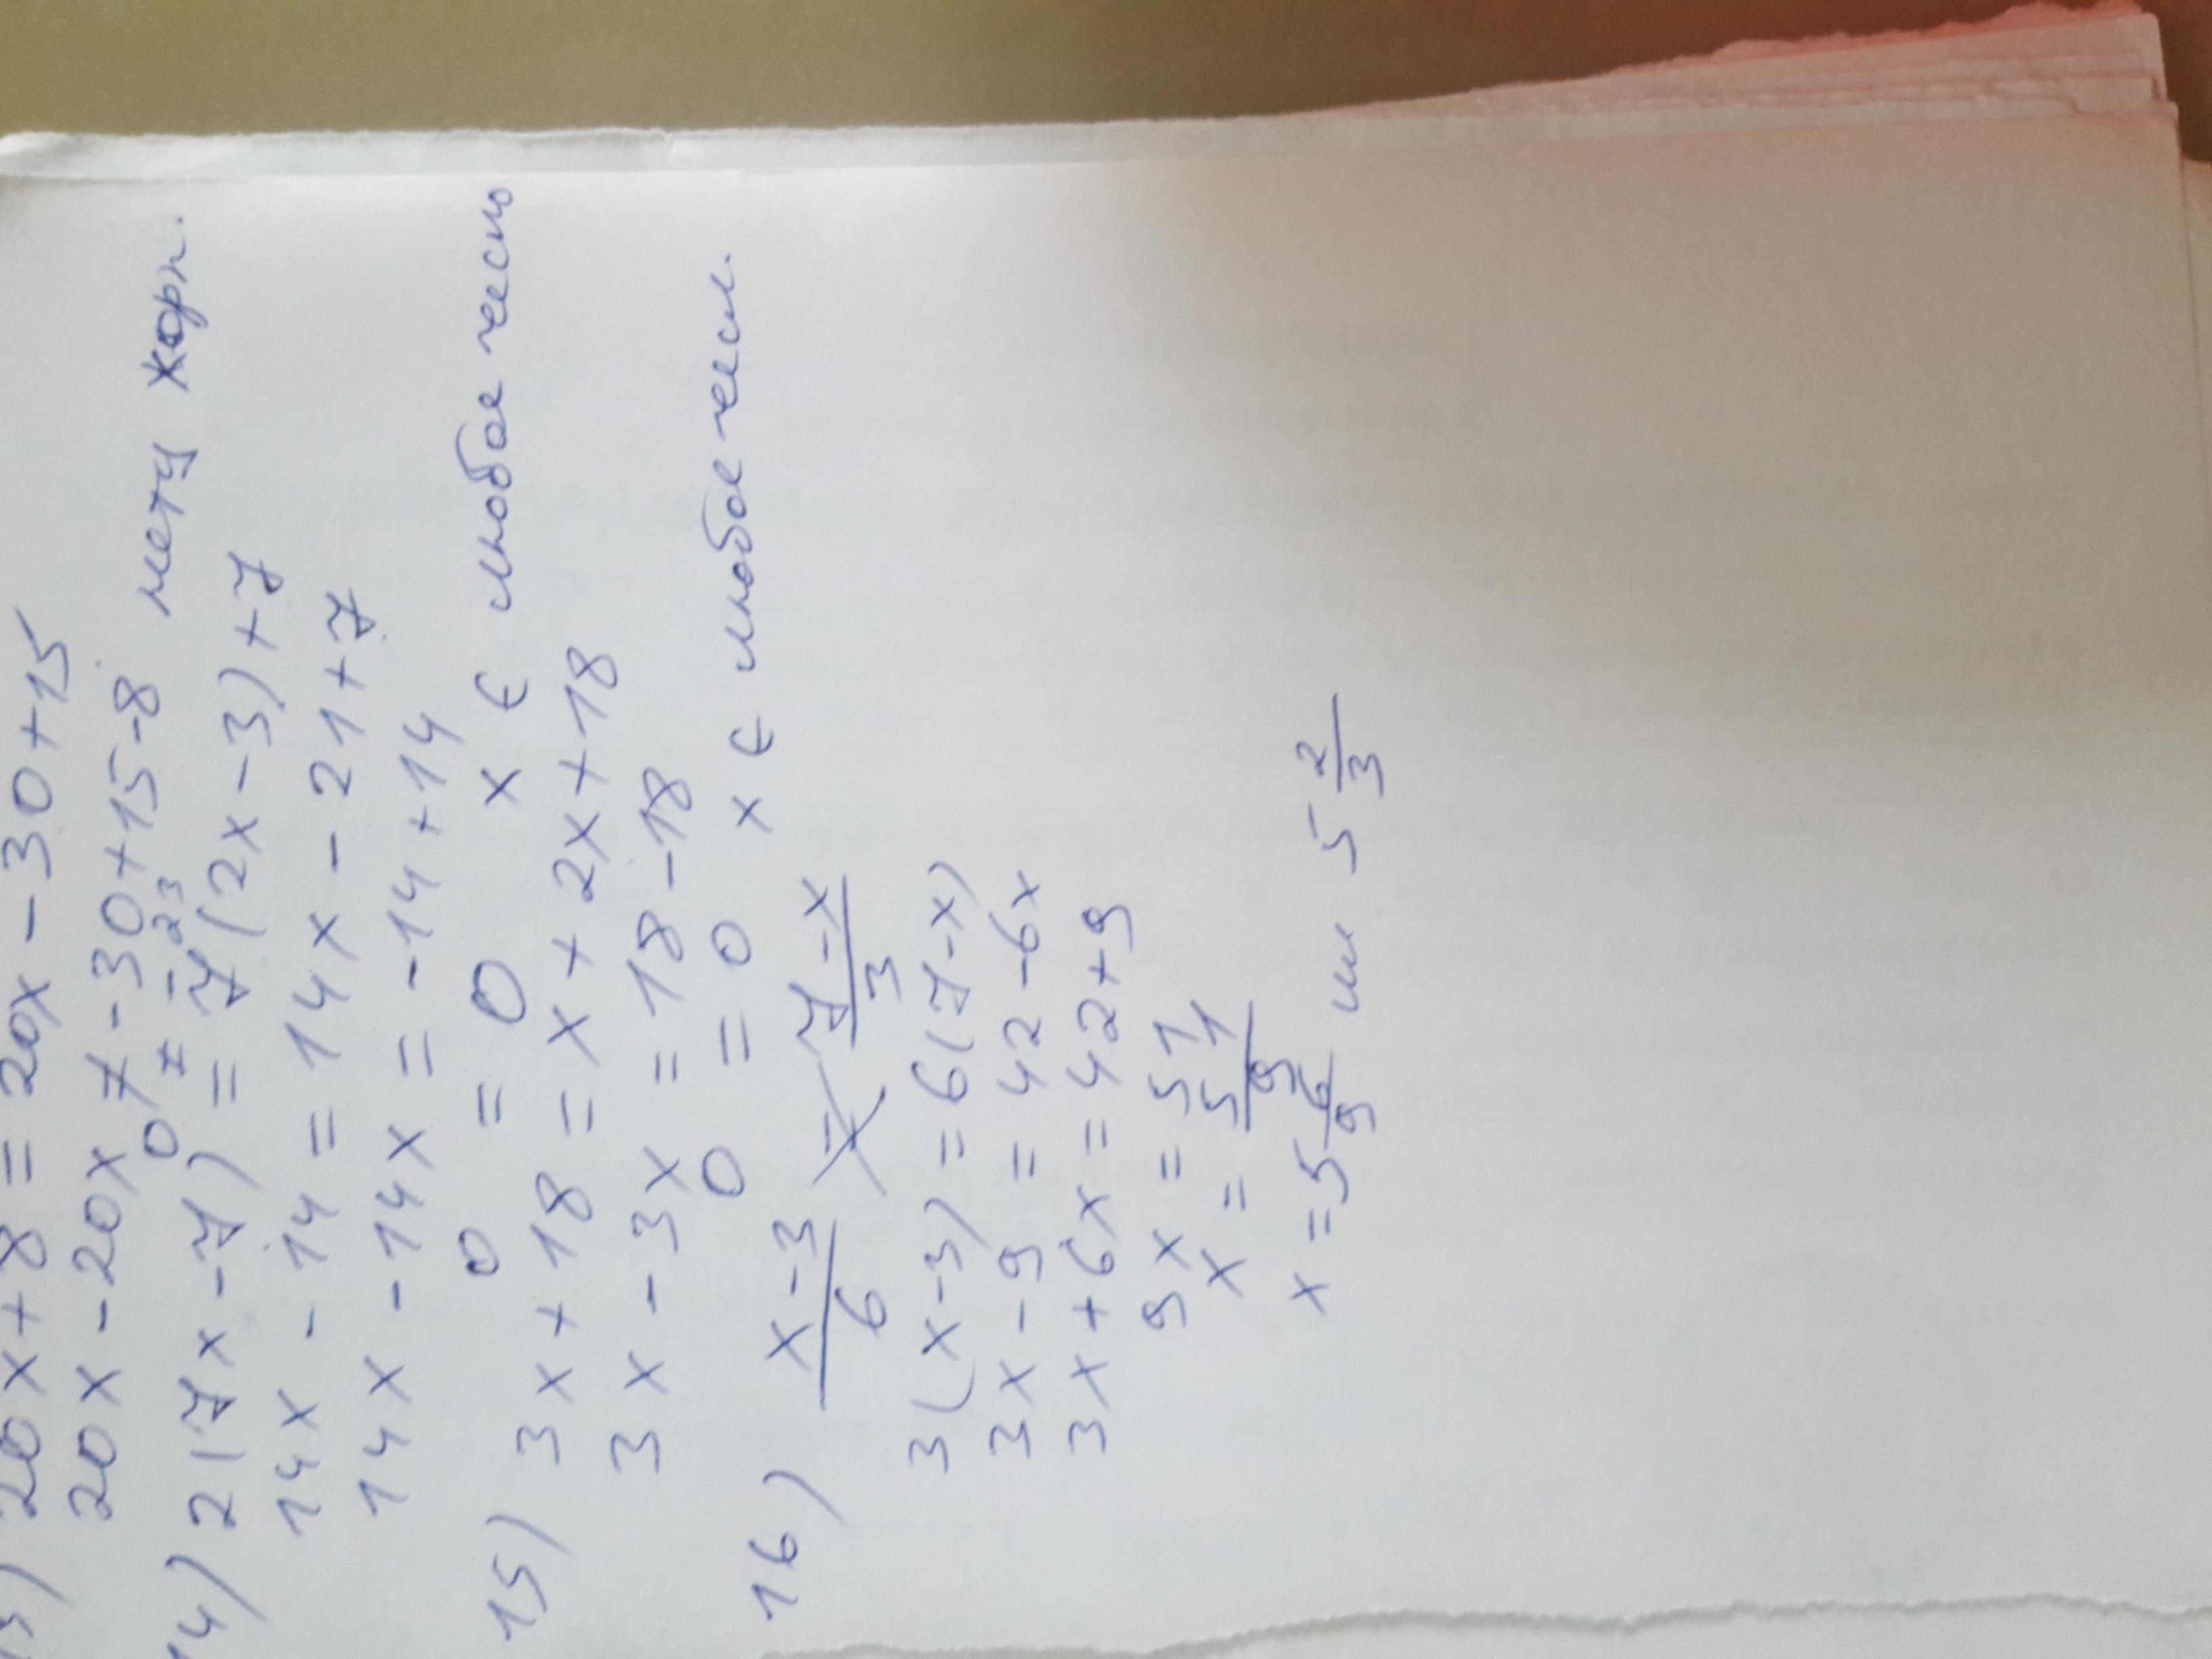 13) 20x+8 = 20x-30+15
20x-20x ≠ -30+15-8
0 ≠ -23 нету корн.
14) 2(7x-7) = 7(2x-3)+7
14x-14 = 14x-21+7
14x-14x = -14+14
0 = 0 x ∈ любое число
15) 3x+18 = x+2x+18
3x-3x = 18-18
0 = 0 x ∈ любое числ.
16) x-3/6 = 7-x/3
3(x-3) = 6(7-x)
3x-9 = 42-6x
3x+6x = 42+9
9x = 51
x = 51/9
x = 5 6/9 или 5 2/3